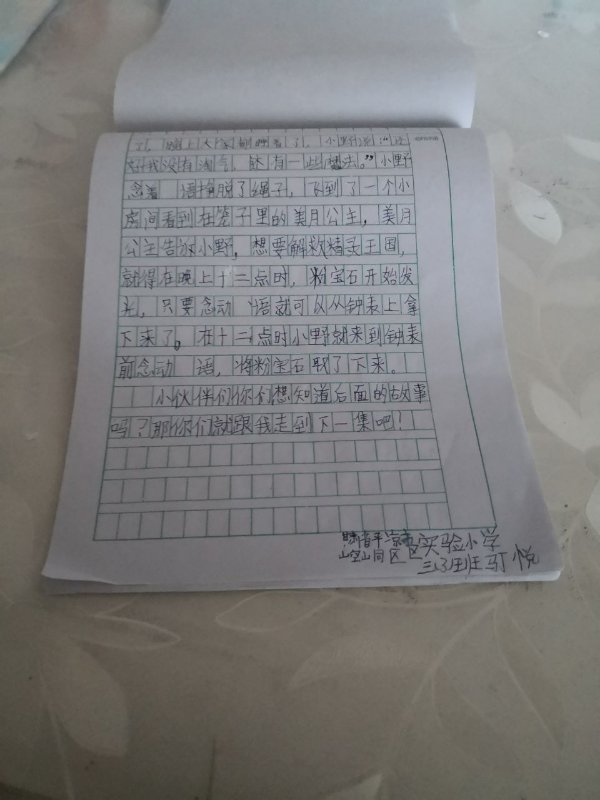 了。晚上大家都睡着了，小野说："还
好我没有淘气，还有一些魔法。"小野
念着 语挣脱了绳子，飞到了一个小
房间看到在笼子里的美月公主，美月
公主告诉小野，想要解救精灵王国，
就得在晚上十二点时，粉宝石开始发
光，只要念动 语就可以从钟表上拿
下来了。在十二点时小野就来到钟表
前念动 语，将粉宝石取了下来。
小伙伴们你们想知道后面的故事
吗？那你们就跟我走到下一集吧！
甘肃省平凉市
崆峒区 实验小学
三 班 悦